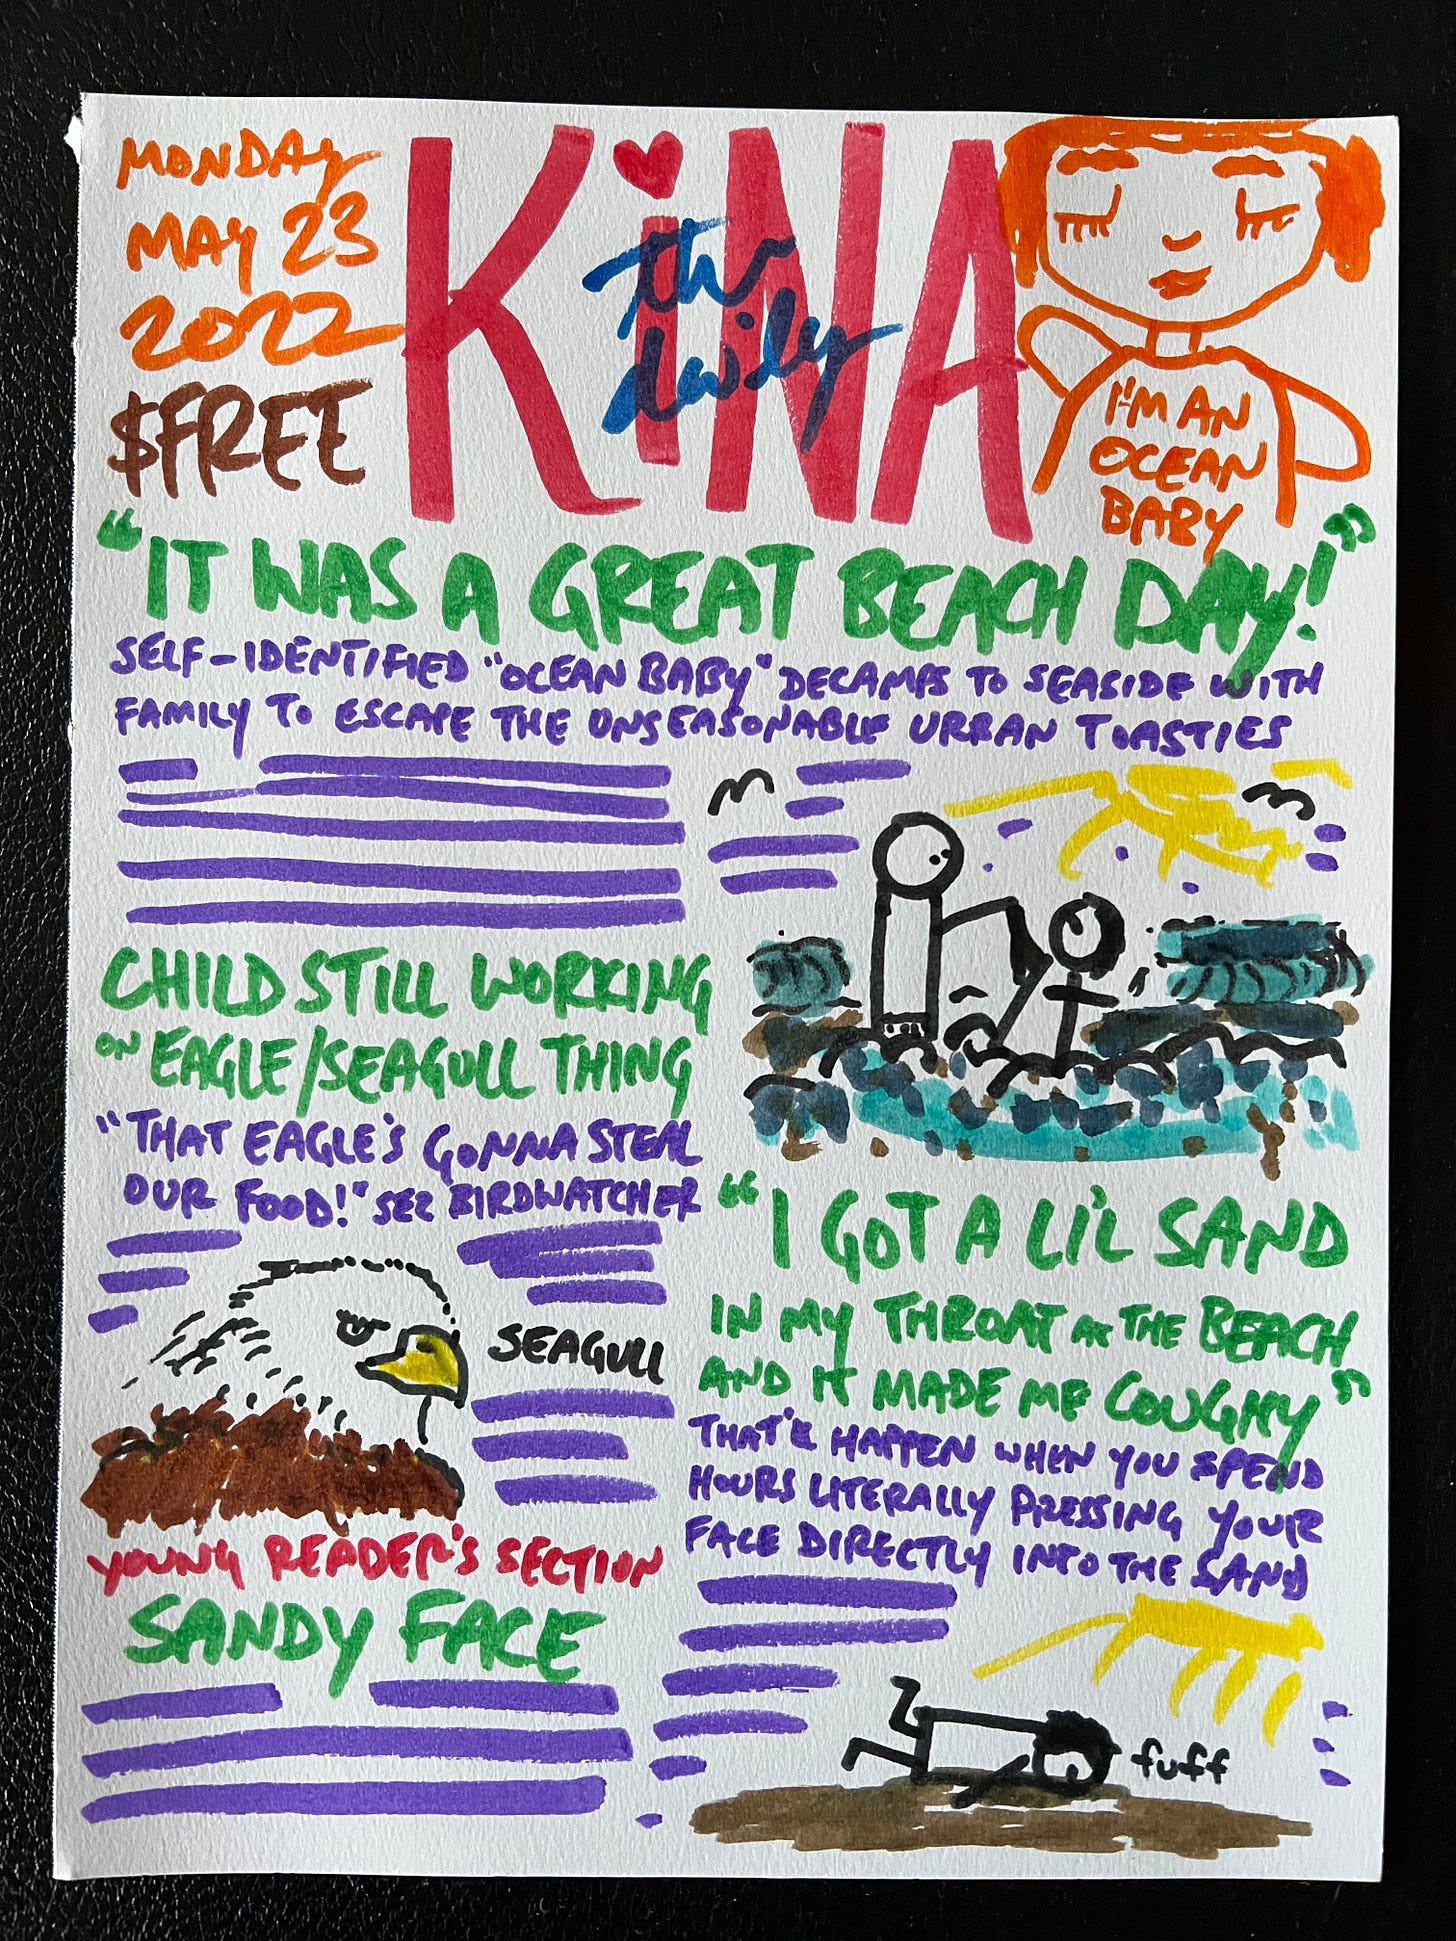 MONDAY
MAY 23
2022
$FREE
KiNA
the daily
I'M AN
OCEAN
BABY
"IT WAS A GREAT BEACH DAY!"
SELF-IDENTIFIED "OCEAN BABY" DECAMPS TO SEASIDE WITH
FAMILY TO ESCAPE THE UNSEASONABLE URBAN TOASTIES
CHILD STILL WORKING
ON EAGLE/SEAGULL THING
"THAT EAGLE'S GONNA STEAL
OUR FOOD!" SEZ BIRDWATCHER
SEAGULL
YOUNG READER'S SECTION
SANDY FACE
"I GOT A LI'L SAND
IN MY THROAT AT THE BEACH
AND IT MADE ME COUGHY"
THAT'LL HAPPEN WHEN YOU SPEND
HOURS LITERALLY PRESSING YOUR
FACE DIRECTLY INTO THE SAND
fuff